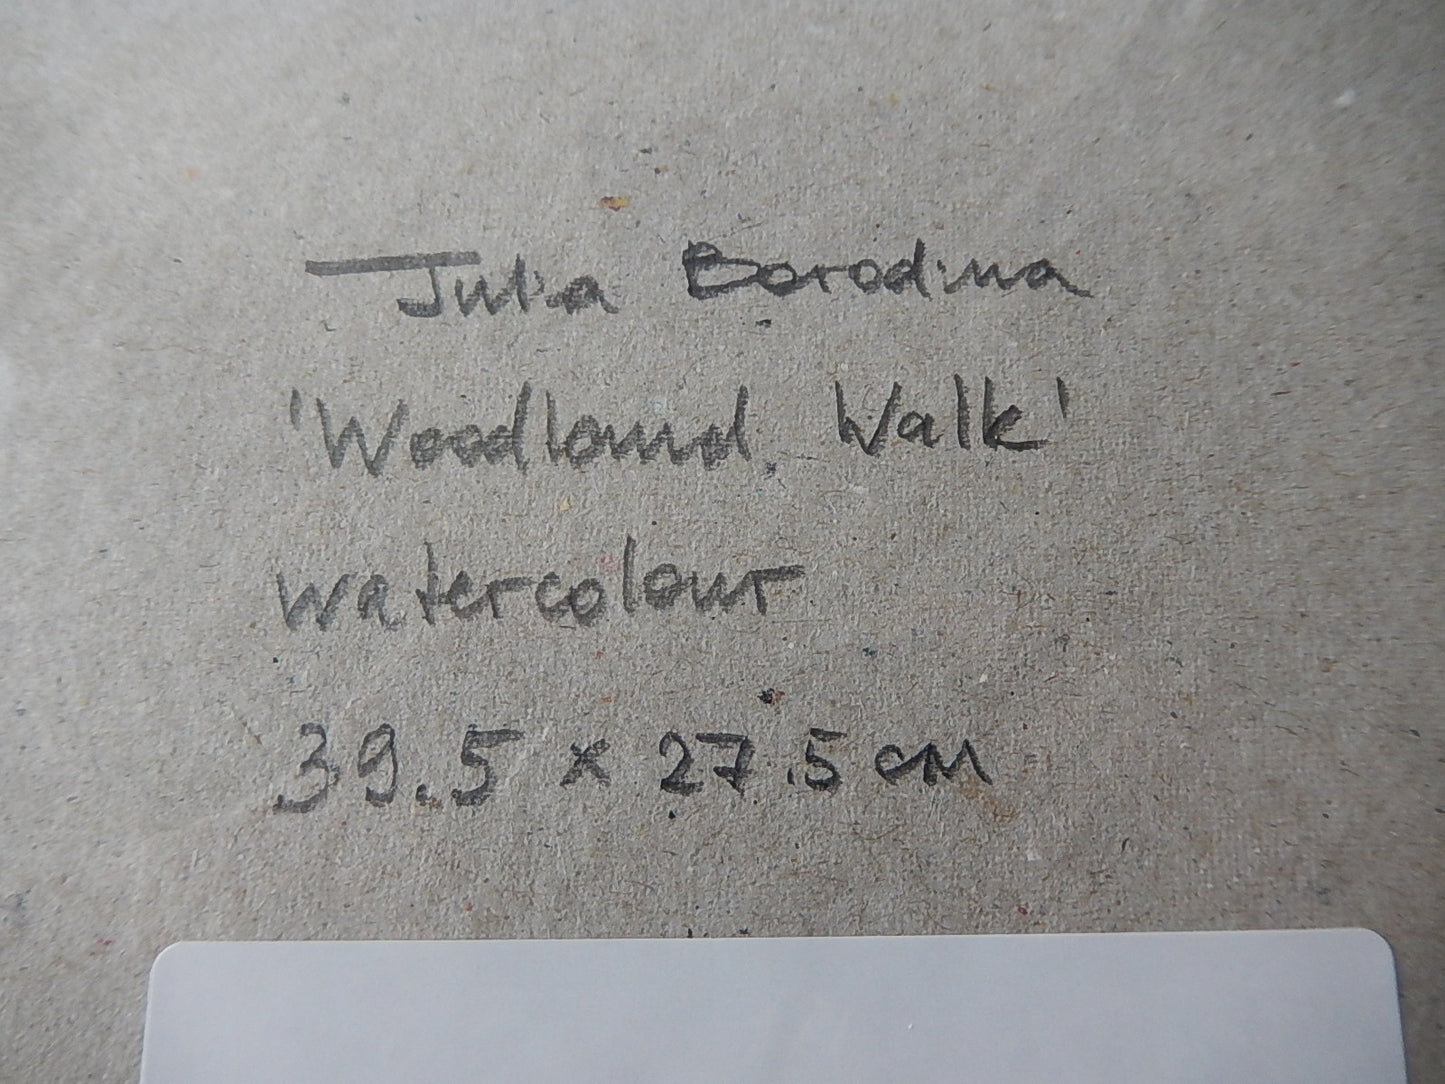 Julia Borodina
'Woodland Walk'
watercolour
39.5 x 27.5 cm